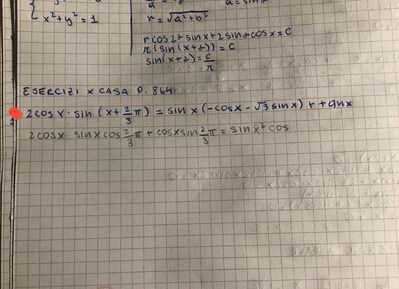 x²+y²=1
r=√a²+b²
r cos2+sinx+2sin2cosx=c
r(sin(x+2))=c
sin(x+2)=c/r
ESERCIZI X CASA P. 864
2cosx·sin(x+2/3π)=sinx(-cosx-√3sinx)
2cosx sinxcos2/3π+cosxsin2/3π=sinx²cos